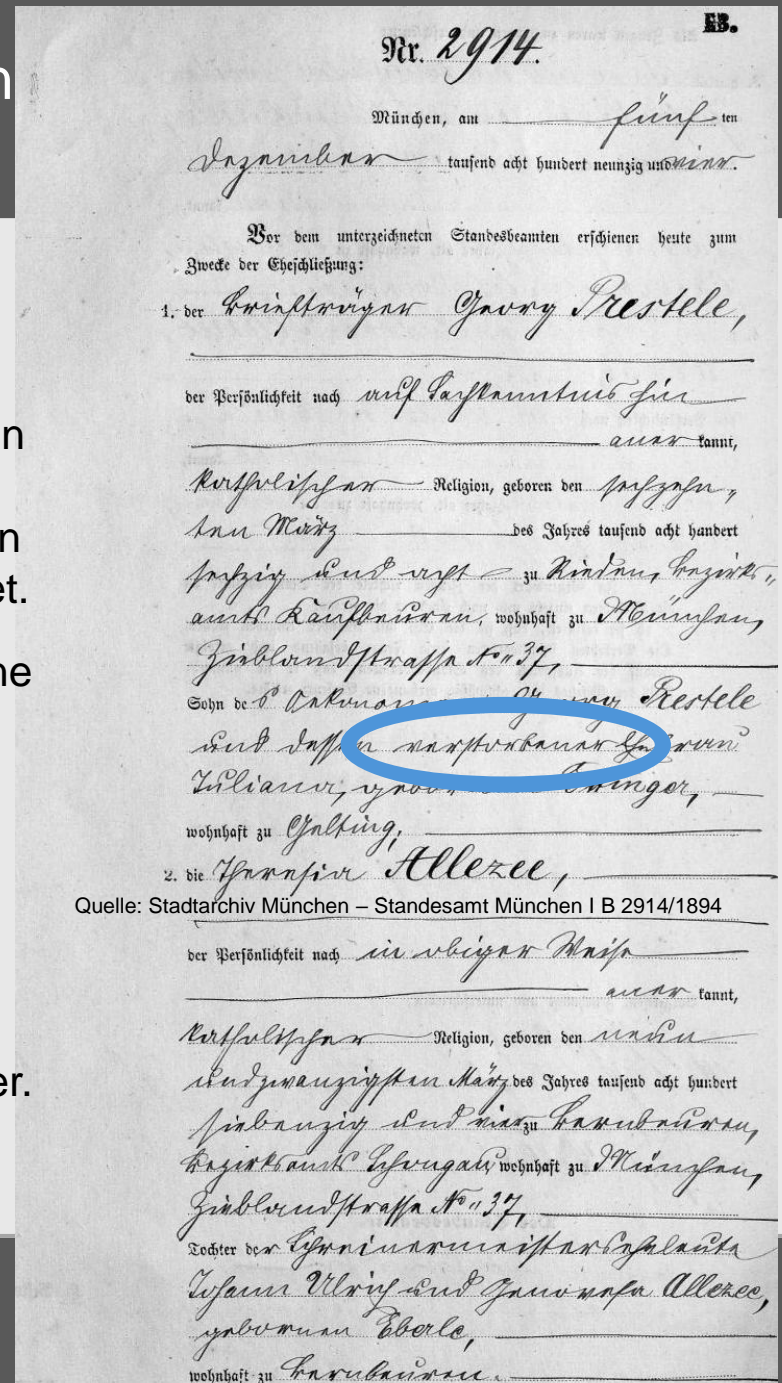 B.
Nr. 2914.
München, am fünf ten
Dezember tausend acht hundert neunzig und vier.
Vor dem unterzeichneten Standesbeamten erschienen heute zum
Zwecke der Eheschließung:
1. der Briefträger Georg Prestele,
der Persönlichkeit nach auf Sachkenntnis hin
aner kannt,
katholischer Religion, geboren den sechzehn-
ten März des Jahres tausend acht hundert
sechzig und acht zu Rieden, Bezirks-
amts Kaufbeuren, wohnhaft zu München,
Zieblandstrasse No 37,
Sohn des Georg Prestele
und dessen verstorbener Ehefrau
Juliana,
wohnhaft zu Gelting,
2. die Theresia Allezee,
Quelle: Stadtarchiv München – Standesamt München I B 2914/1894
der Persönlichkeit nach in obiger Weise
aner kannt,
katholischer Religion, geboren den neun
undzwanzigsten März des Jahres tausend acht hundert
siebenzig und vier zu Bernbeuren,
Bezirksamts Schongau, wohnhaft zu München,
Zieblandstrasse No 37,
Tochter der Schreinermeisterseheleute
Johann Ulrich und Genovefa Allezee,
gebornen Eberle,
wohnhaft zu Bernbeuren.
n
n
n
et.
ne
er.